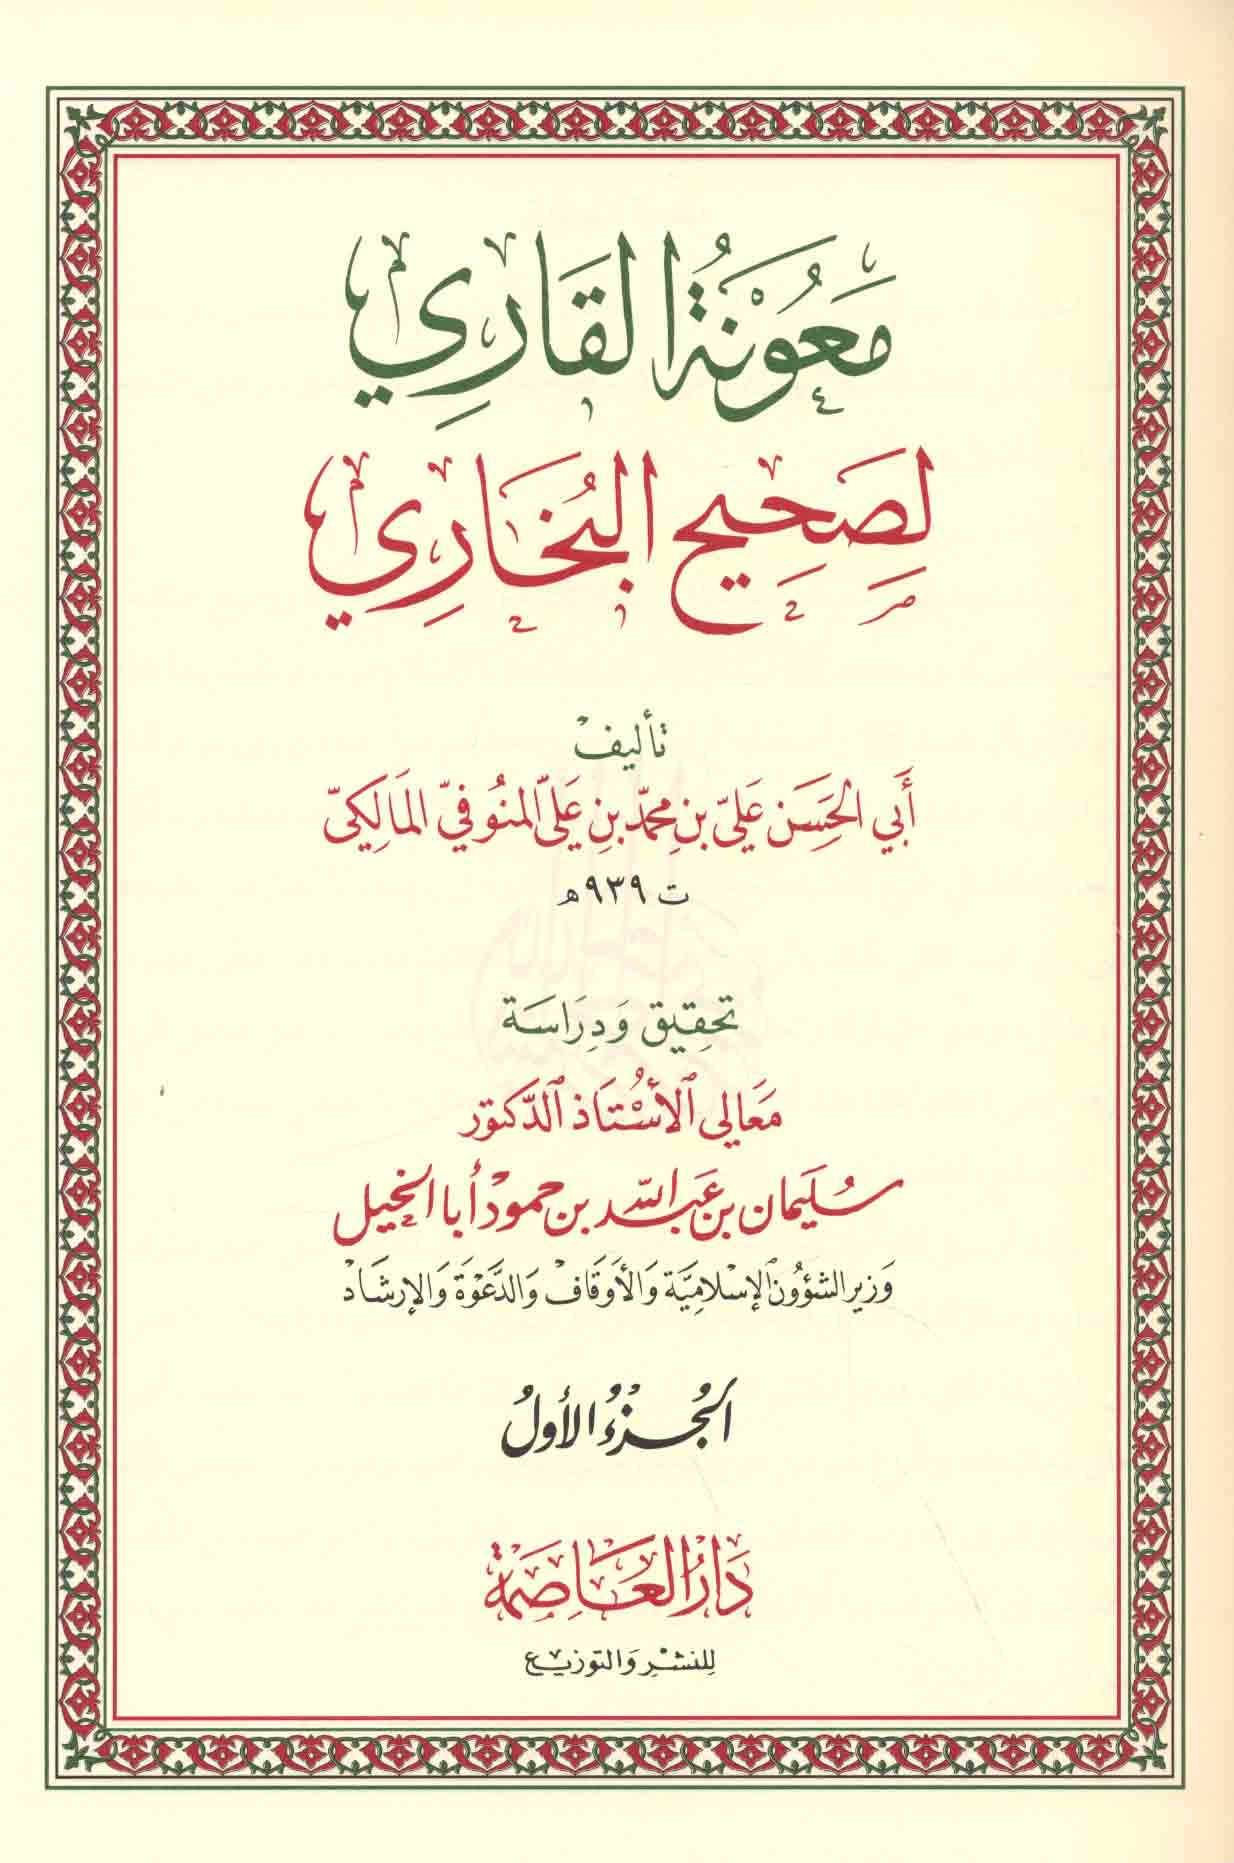 مَعُونَةُ القَارِي
لِصَحِيحِ البُخَارِي
تأليف
أَبِي الحَسَن عَلِيّ بن محمّد بن عَلي المنُوفيّ المَالِكيّ
ت ٩٣٩ هـ
تحقِيق وَدِرَاسَة
مَعَالي الأُسْتَاذ الدَّكتور
سُليمان بن عَبد اللّه بن حمود أبا الخيل
وَزير الشؤُون الإسْلَامِيَّة وَالأَوقَاف وَالدَّعْوَة وَالإرشَاد
الجُزءُ الأولُ
دَارُ العَاصِمَة
لِلنشْرِ وَالتوزيع